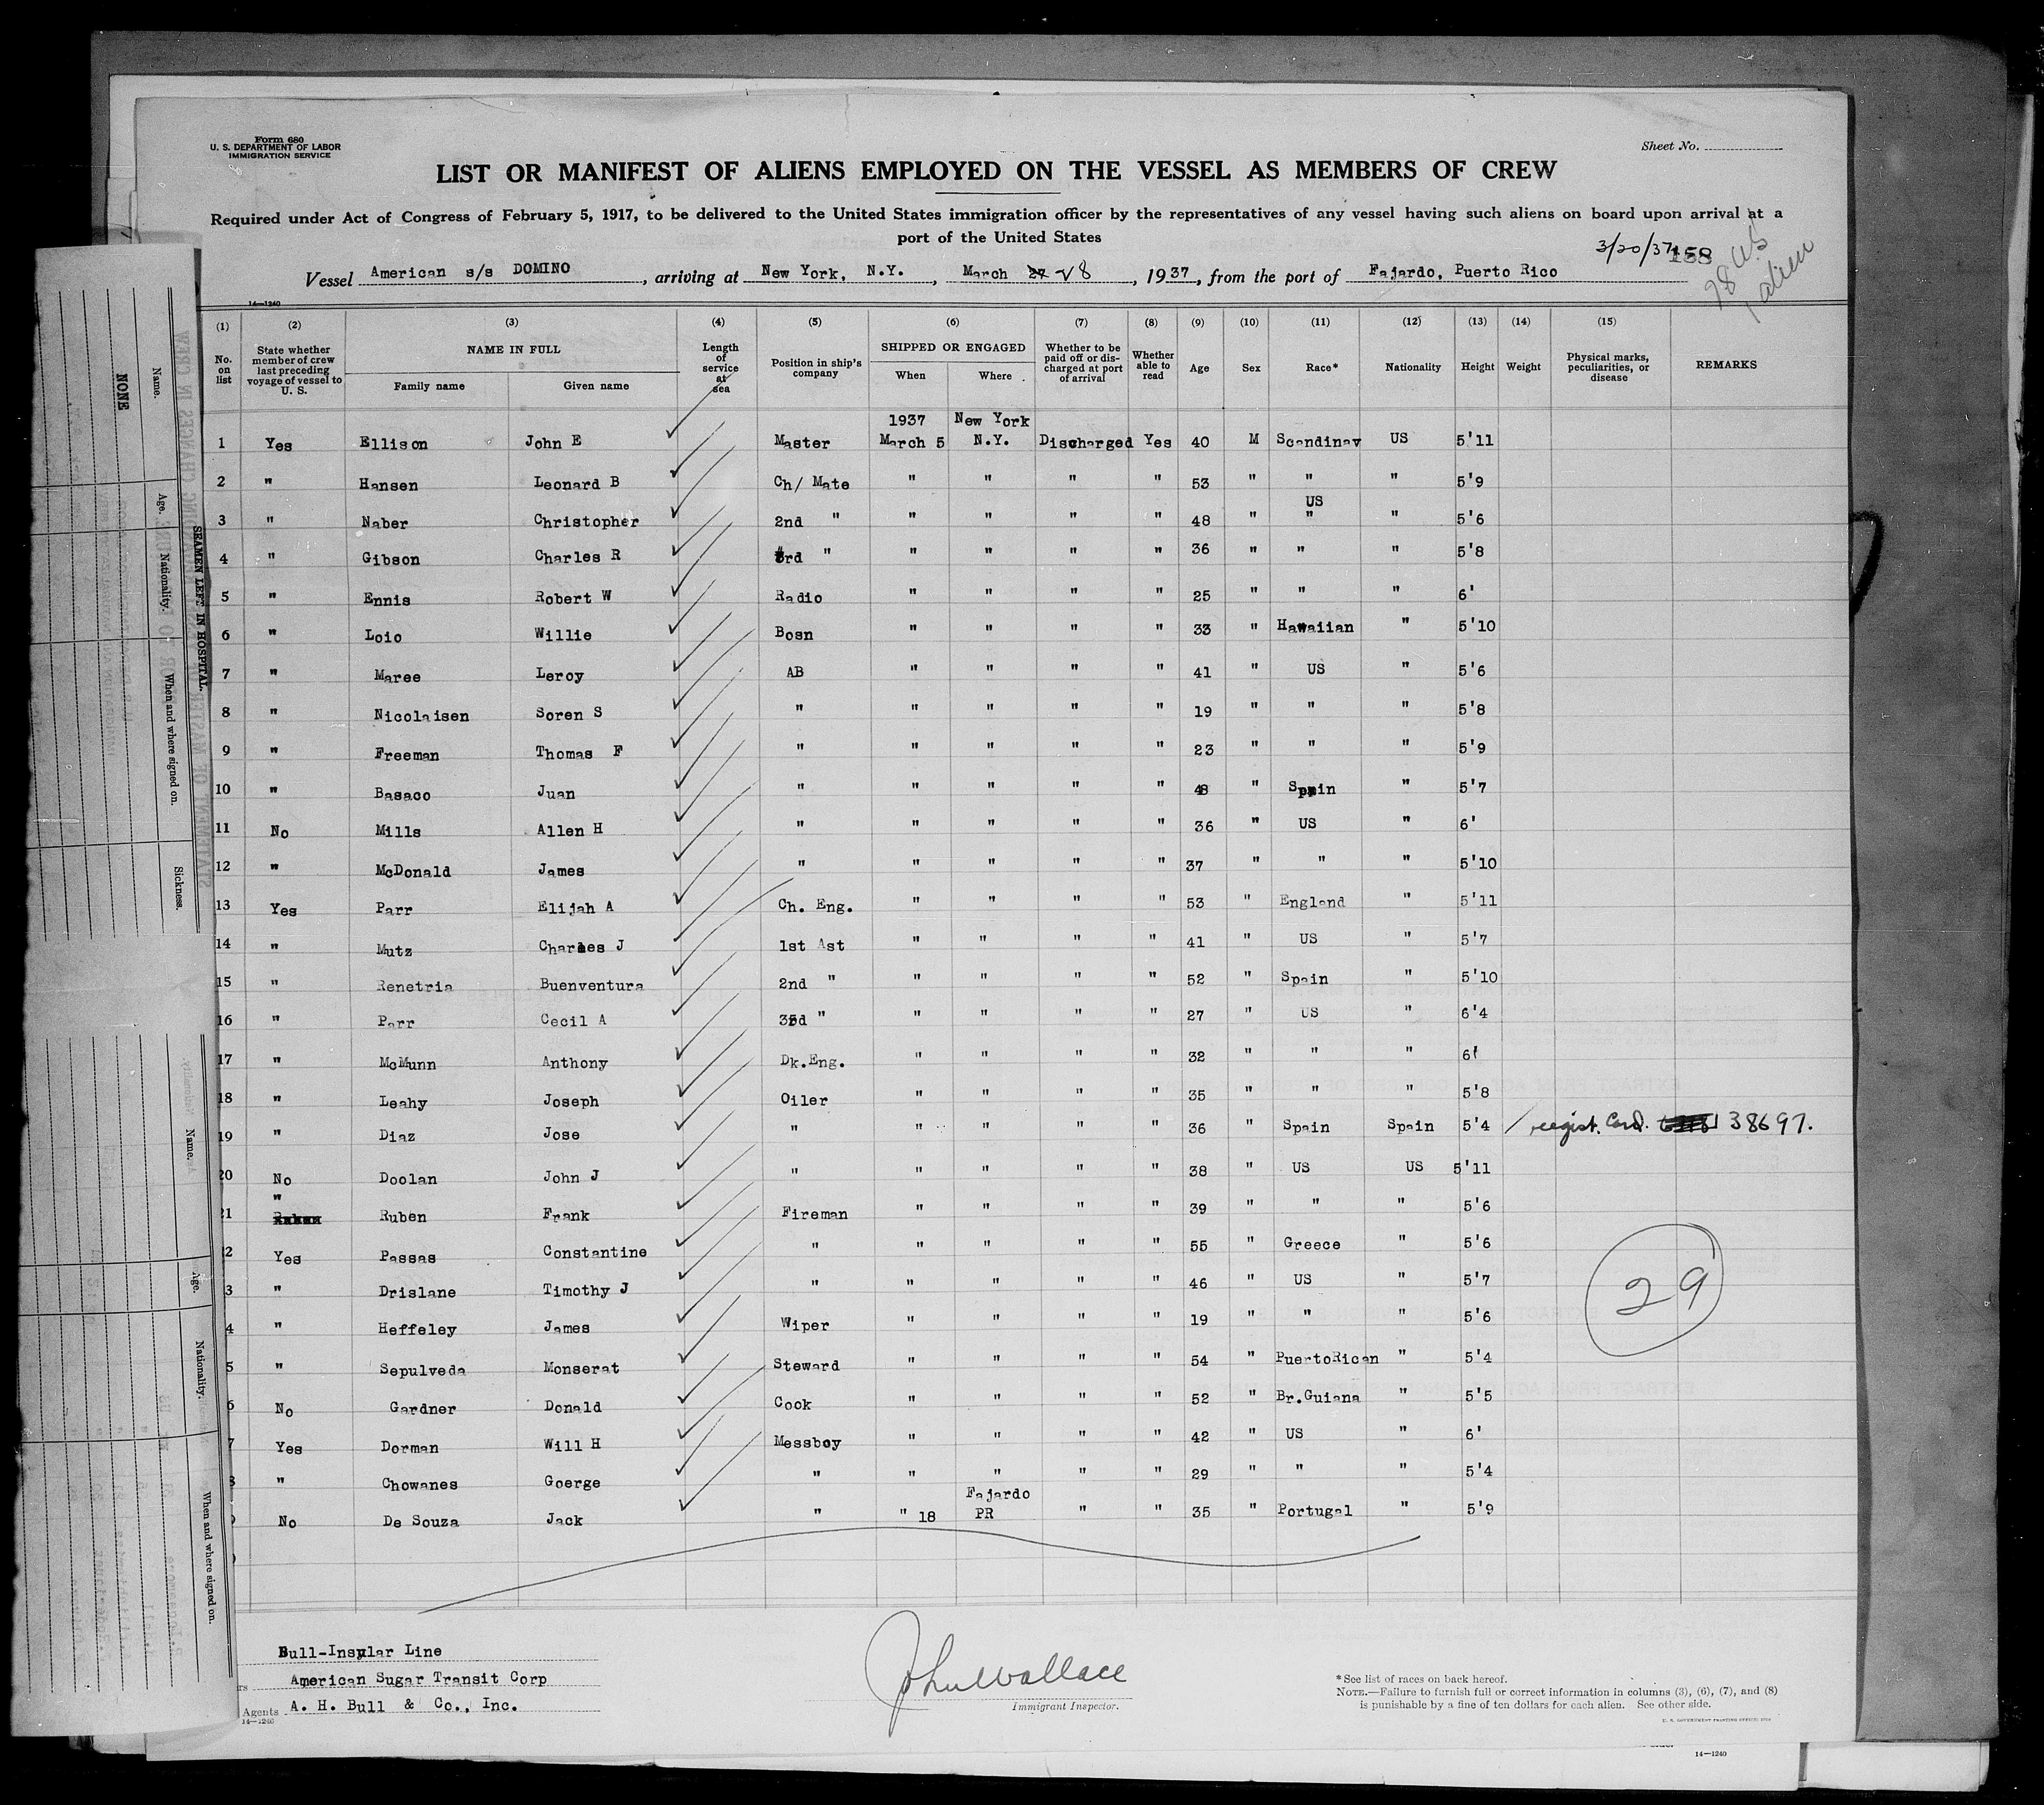 Form 680
U. S. DEPARTMENT OF LABOR
IMMIGRATION SERVICE
Sheet No.
LIST OR MANIFEST OF ALIENS EMPLOYED ON THE VESSEL AS MEMBERS OF CREW
Required under Act of Congress of February 5, 1917, to be delivered to the United States immigration officer by the representatives of any vessel having such aliens on board upon arrival at a
port of the United States
3/20/37 158
28 US
1 alien
Vessel American s/s DOMINO, arriving at New York, N.Y., March 27 28, 1937, from the port of Fajardo, Puerto Rico
14—1240
(1) (2) (3) (4) (5) (6) (7) (8) (9) (10) (11) (12) (13) (14) (15)
No. on list State whether member of crew last preceding voyage of vessel to U. S. NAME IN FULL Family name Given name Length of service at sea Position in ship's company SHIPPED OR ENGAGED When Where Whether to be paid off or discharged at port of arrival Whether able to read Age Sex Race* Nationality Height Weight Physical marks, peculiarities, or disease REMARKS
1937 New York
1 Yes Ellison John E Master March 5 N.Y. Discharged Yes 40 M Scandinav US 5'11
2 " Hansen Leonard B Ch/ Mate " " " " 53 " " " 5'9
US
3 " Naber Christopher 2nd " " " " " 48 " " " 5'6
4 " Gibson Charles R 3rd " " " " " 36 " " " 5'8
5 " Ennis Robert W Radio " " " " 25 " " " 6'
6 " Loio Willie Bosn " " " " 33 " Hawaiian " 5'10
7 " Maree Leroy AB " " " " 41 " US " 5'6
8 " Nicolaisen Soren S " " " " " 19 " " " 5'8
9 " Freeman Thomas F " " " " " 23 " " " 5'9
10 " Basaco Juan " " " " " 48 " Spain " 5'7
11 No Mills Allen H " " " " " 36 " US " 6'
12 " McDonald James " " " " " 37 " " " 5'10
13 Yes Parr Elijah A Ch. Eng. " " " " 53 " England " 5'11
14 " Mutz Charles J 1st Ast " " " " 41 " US " 5'7
15 " Renetria Buenventura 2nd " " " " " 52 " Spain " 5'10
16 " Parr Cecil A 3rd " " " " " 27 " US " 6'4
17 " McMunn Anthony Dk.Eng. " " " " 32 " " " 6'
18 " Leahy Joseph Oiler " " " " 35 " " " 5'8
19 " Diaz Jose " " " " " 36 " Spain Spain 5'4 / regist. Card. 138697.
20 No Doolan John J " " " " " 38 " US US 5'11
21 " Ruben Frank Fireman " " " " 39 " " " 5'6
2 Yes Passas Constantine " " " " " 55 " Greece " 5'6
3 " Drislane Timothy J " " " " " 46 " US " 5'7
4 " Heffeley James Wiper " " " " 19 " " " 5'6
5 " Sepulveda Monserat Steward " " " " 54 " PuertoRican " 5'4
6 No Gardner Donald Cook " " " " 52 " Br.Guiana " 5'5
7 Yes Dorman Will H Messboy " " " " 42 " US " 6'
8 " Chowanes Goerge " " " " " 29 " " " 5'4
Fajardo
No De Souza Jack " " 18 PR " " 35 " Portugal " 5'9
29
Bull-Insular Line
American Sugar Transit Corp
Agents A. H. Bull & Co., Inc.
14—1240
John Wallace
Immigrant Inspector.
*See list of races on back hereof.
NOTE.—Failure to furnish full or correct information in columns (3), (6), (7), and (8)
is punishable by a fine of ten dollars for each alien. See other side.
U. S. GOVERNMENT PRINTING OFFICE
14—1240
SEAMEN LEFT IN HOSPITAL.
Name. Age. Nationality. When and where signed on. Sickness.
NONE
Name. Age. Nationality. When and where signed on.